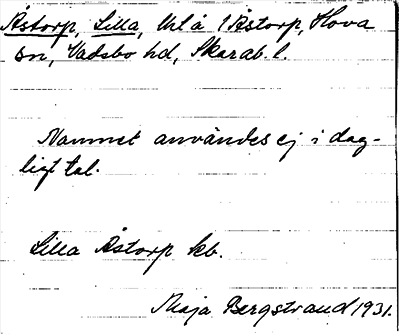 Åstorp, Lilla, Uhl å 1 Åstorp, Hova
sn, Vadsbo hd, Skarab. l.
Namnet användes ej i dag-
ligt tal.
Lilla Åstorp kb.
Maja Bergstrand 1931.